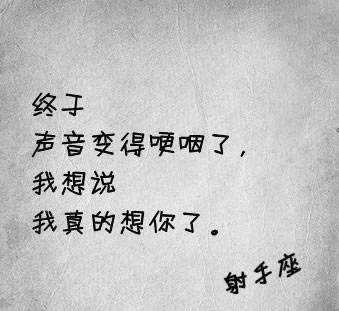 终于
声音变得哽咽了，
我想说
我真的想你了。
射手座